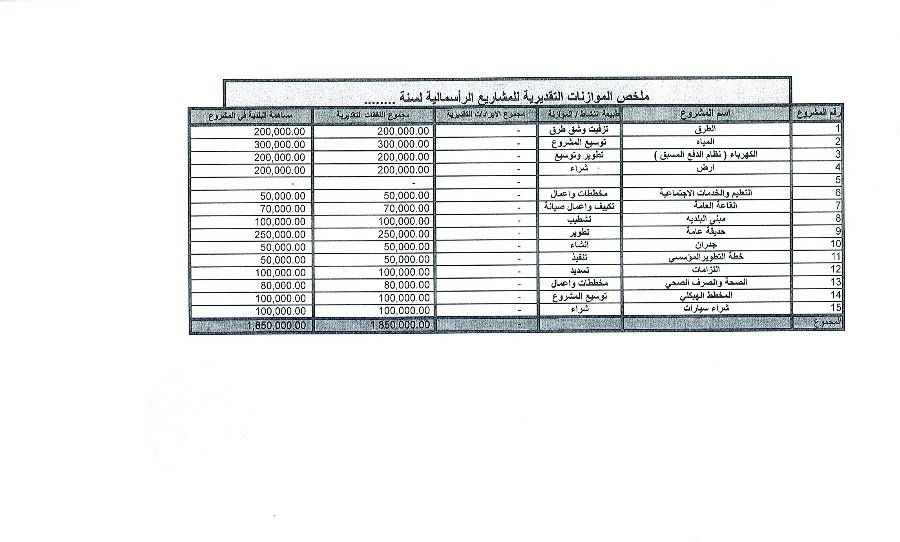 ملخص الموازنات التقديرية للمشاريع الرأسمالية لسنة ........
رقم المشروع اسم المشروع طبيعة النشاط / الموازنة مجموع الايرادات التقديرية مجموع النفقات التقديرية مساهمة البلدية في المشروع
1 الطرق تزفيت وشق طرق - 200,000.00 200,000.00
2 المياه توسيع المشروع - 300,000.00 300,000.00
3 الكهرباء ( نظام الدفع المسبق ) تطوير وتوسيع - 200,000.00 200,000.00
4 ارض شراء - 200,000.00 200,000.00
5 - - -
6 التعليم والخدمات الاجتماعية مخططات واعمال - 50,000.00 50,000.00
7 القاعة العامة تكييف واعمال صيانة - 70,000.00 70,000.00
8 مبنى البلديه تشطيب - 100,000.00 100,000.00
9 حديقة عامة تطوير - 250,000.00 250,000.00
10 جدران انشاء - 50,000.00 50,000.00
11 خطة التطوير المؤسسي تنفيذ - 50,000.00 50,000.00
12 التزامات تسديد - 100,000.00 100,000.00
13 الصحة والصرف الصحي مخططات واعمال - 80,000.00 80,000.00
14 المخطط الهيكلي توسيع المشروع - 100,000.00 100,000.00
15 شراء سيارات شراء - 100,000.00 100,000.00
المجموع - 1,850,000.00 1,850,000.00